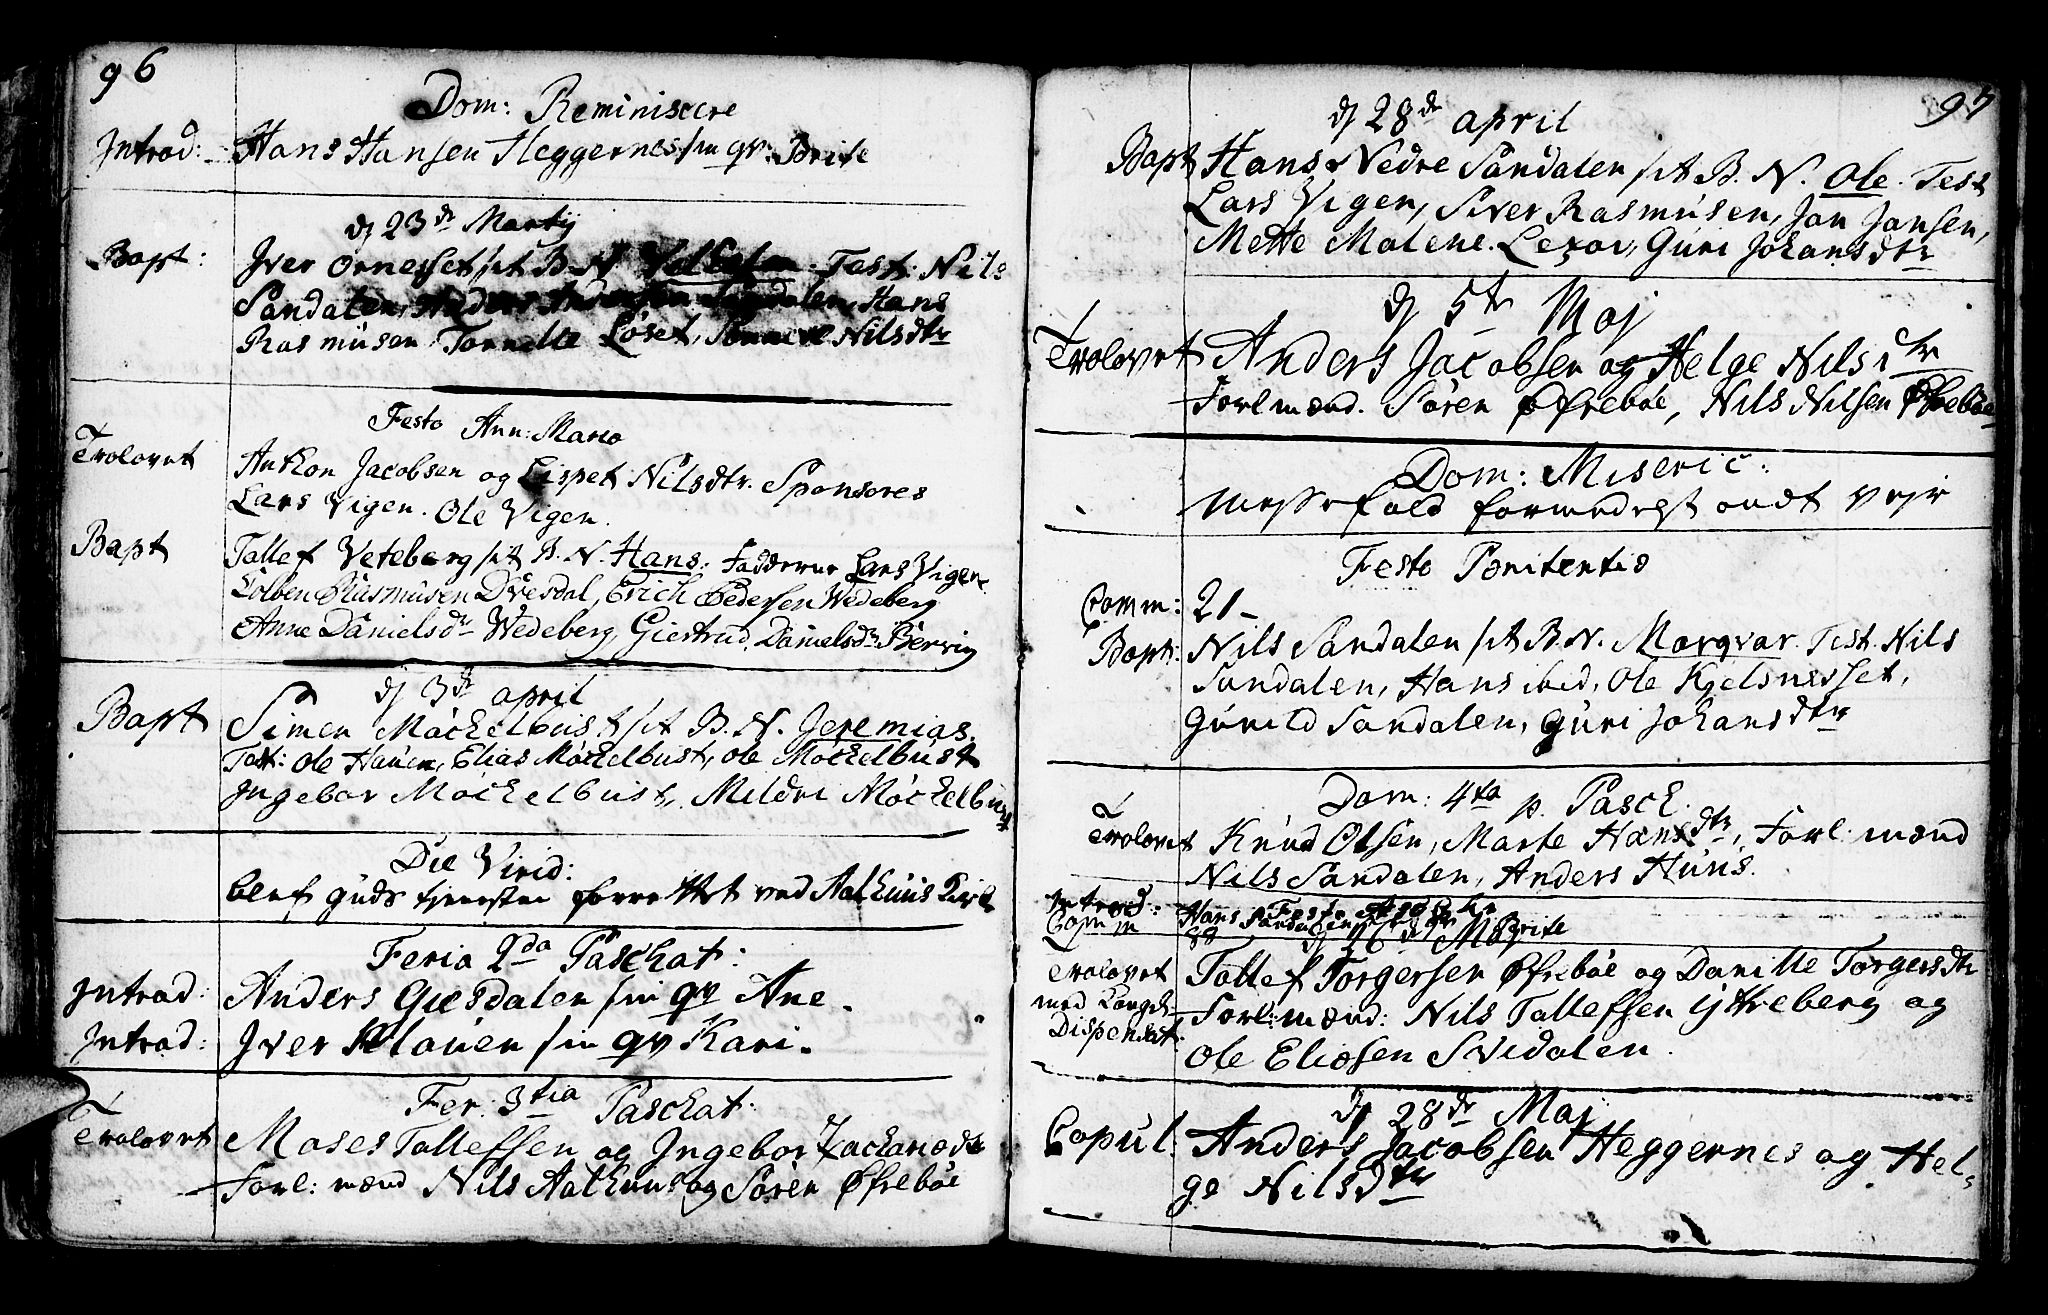 96
Dom: Reminiscere
Introd: Hans Hansen Heggernes sin qv: Brite
dj 23de Martij
Bapt: Iver Ornesset sit B. N. Test: Nils
Sandalen, Anders Andersen Hans
Rasmusen, Tonnette Løset, Nilsdtr
Festo Ann: Mariæ
Trolovet Anthon Jacobsen og Lispet Nilsdtr. Sponsores
Lars Vigen. Ole Vigen.
Bapt Tollef Veteberg sit B. N. Hans. Fadderne Lars Vigen
Colben Rasmusen Dvesdal, Erich Pedersen Wedeberg
Anne Danielsdr Wedeberg, Giertrud Danielsdr Bervig
dj 3de april
Bapt Simen Møckelbust sit B. N. Jeremias.
Test: Ole Hauen, Elias Møckelbust, Ole Møckelbust
Ingebor Møckelbust, Mildri Møckelbust
Die Virid:
blef guds tjenesten forrettet ved Aalhuus Kirk
Feria 2da Paschat:
Introd: Anders Giesdalen sin qv Ane.
Introd: Iver Klauen sin qv Kari.
Fer: 3tia Paschat:
Trolovet Moses Tollefsen og Ingebor Zachariædtr
Forl: mænd Nils Aalhuus og Søren Øfrebøe
97
dj 28de april
Bapt Hans Nedre Sandalen sit B. N. Ole. Test
Lars Vigen, Siver Rasmusen, Jan Jansen,
Mette Malene. Lexov, Guri Johansdtr
dj 5te Maj
Trolovet Anders Jacobsen og Helge Nilsdtr
Forl mænd. Søren Øfrebøe, Nils Nilsen Øfrebøe
Dom: Miseric:
Messefald formedelst ondt vejr
Festo Pœnitentiæ
Comm: 21 -
Bapt: Nils Sandalen sit B. N. Marqvar. Test. Nils
Sandalen, Hans ibid, Ole Kjelsnesset,
Gunild Sandalen, Guri Johansdtr
Dom: 4ta p. Pasch.
Trolovet Knud Olsen, Marte Hansdtr, Forl: mænd
Nils Sandalen, Anders Huns.
Introd: Hans Sandalen sin qv Brite
Festo
Comm 88
dj 16de Maj
Trolovet Tollef Torgersen Øfrebøe og Danielle Torgersdtr
med Kongel. Forl: mænd: Nils Tollefsen Ytreberg og
Dispensat: Ole Eliæsen Svidalen.
dj 28de Maj
Copul. Anders Jacobsen Heggernes og Hel-
ge Nilsdtr